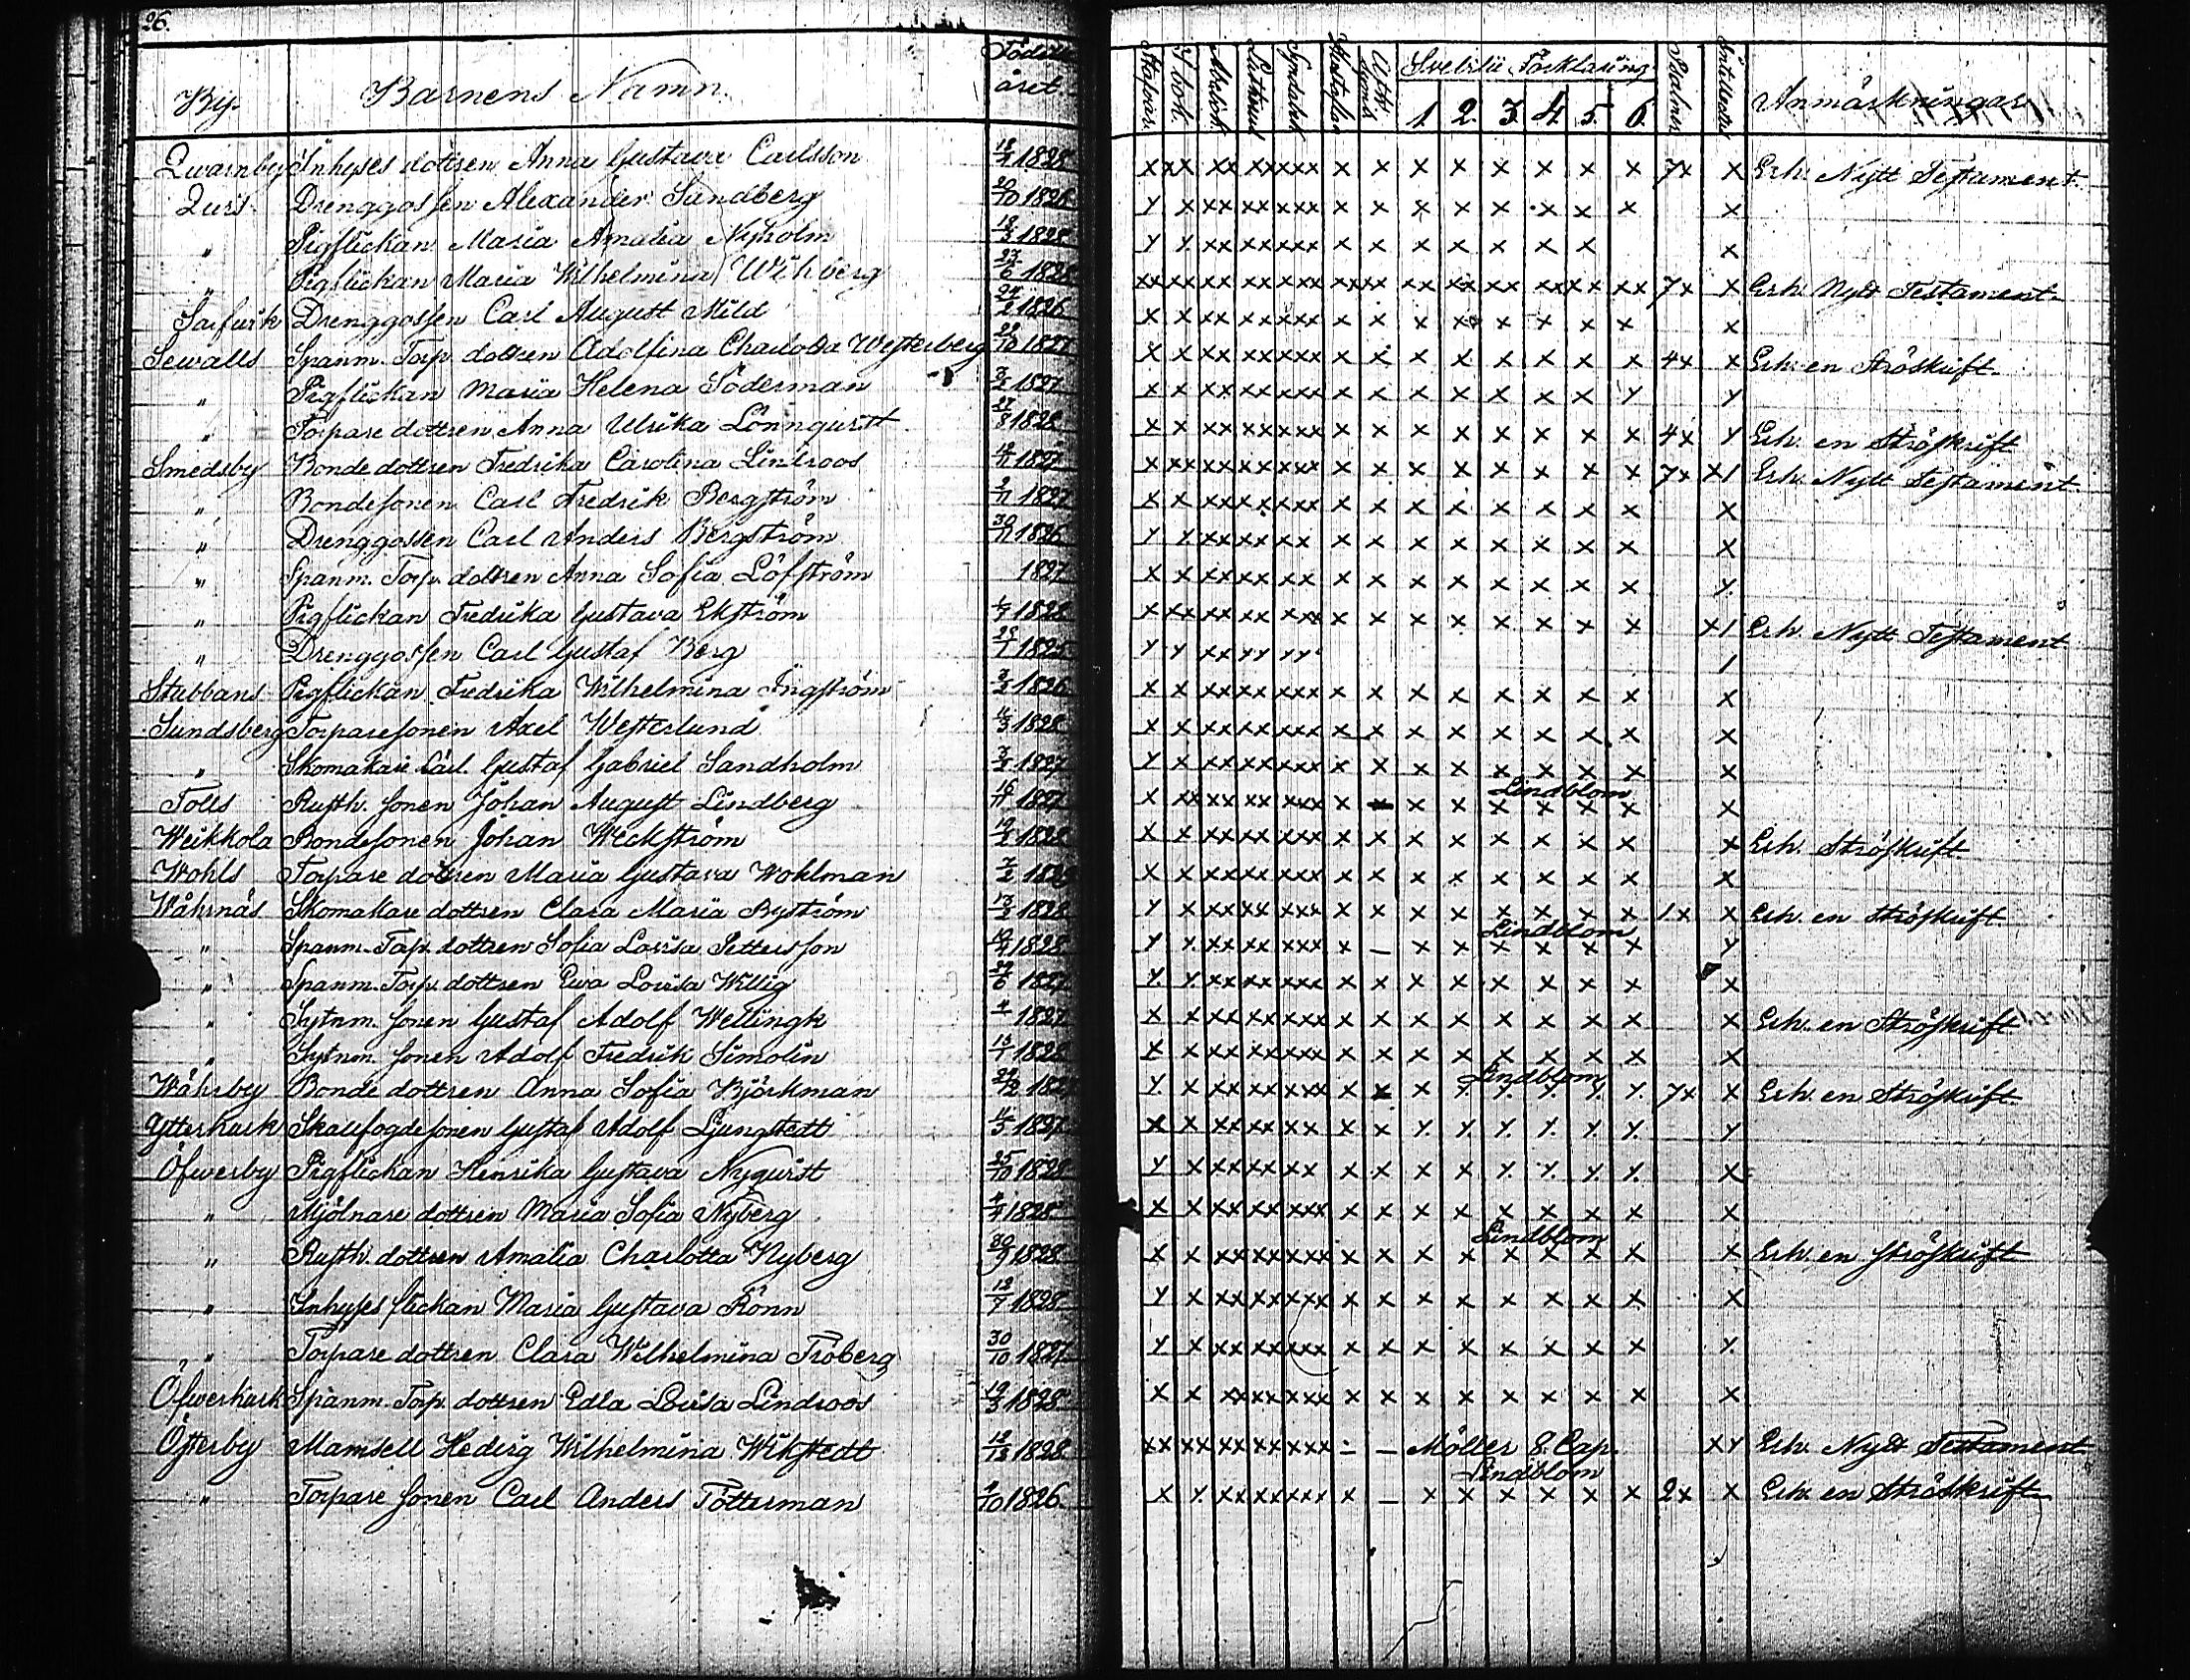 26.
By. Barnens Namn. Födelse året Stafvar. I bok. Abcbok. Luthers Hustaflan Svebilii Förklaring 1. 2. 3. 4. 5. 6. Psalmer Anmärkningar
Qvarnby Inhyses dottren Anna Gustava Carlsson 18/4 1828 x xx xx xx xxx x x x x x x x x 7x x Erh. Nytt Testament.
Qurs Drenggossen Alexander Sundberg 20/10 1826 y x xx xx xxx x x x x x x x x x
" Pigflickan Maria Amalia Nyholm 18/3 1828 y y. xx xx xxx x x x x x x x x
" Pigflickan Maria Wilhelmina Wihberg 27/6 1828 7x x Erh. Nytt Testament.
Sarfvik Drenggossen Carl August Mild 24/2 1826 x x xx xx xxx x x x xx x x x x x
Sewalls Spanm. Torp. dottren Adolfina Charlotta Westerberg 22/10 1827 x x xx xx xxx x x x x x x x x 4x x Erh. en Ströskrift.
" Pigflickan Maria Helena Söderman 3/2 1827 x x xx xx xxx x x x x x x x y y
" Torpare dottren Anna Ulrika Lönnqvist 27/8 1828 x x xx xx xxx x x x x x x x x 4x y Erh. en Ströskrift
Smedsby Bonde dottren Fredrika Carolina Lindroos 1827 x xx xx xx xxx x x x x x x x x 7x x1 Erh. Nytt Testament.
" Bondesonen Carl Fredrik Bergström 2/11 1827 x x xx xx xxx x x x x x x x x x
" Drenggossen Carl Anders Bergström 30/11 1826 y y. xx xx xx x x x x x x x x x
" Spanm. Torp. dottren Anna Sofia Löfström 1827 x x xx xx xx x x x x x x x x y.
" Pigflickan Fredrika Gustava Ekström 1828 x xx xx xx xxx x x x x x x x x x1 Erh. Nytt Testament
" Drenggossen Carl Gustaf Berg 1825 y y xx yy yy 1
Stubbans Pigflickan Fredrika Wilhelmina Ingström 1826 x x xx xx xxx x x x x x x x x x
Sundsberg Torparesonen Axel Westerlund 1828 x x xx xx xxx x x x x x x x x x
" Skomakare Carl. Gustaf Gabriel Sandholm 3/2 1827 y x xx xx xxx x x x x x x x x x
Tolls Rusth. sonen Johan August Lindberg 16/11 1827 x xx xx xx xxx x x x Lindblom x x x x x x
Weikkola Bondesonen Johan Weckström 19/2 1828 x x xx xx xxx x x x x x x x x x Erh. Ströskrift.
Wohls Torpare dottren Maria Gustava Wohlman x x xx xx xxx x x x x x x x x x
Wåhrnäs Skomakare dottren Clara Maria Byström 13/2 1828 y x xx xx xxx x x x x x x x x 1x x Erh. en Ströskrift.
" Spanm. Torp. dottren Sofia Lovisa Pettersson 19/4 1828 y y. xx xx xxx x — x x Lindblom x x x x y
" Spanm. Torp. dottren Eva Lovisa Willig 1827 y. y. xx xx xxx x x x x x x x x x
" Sytnm. sonen Gustaf Adolf Wellingk 1827 x x xx xx xxx x x x x x x x x x Erh. en Ströskrift
" Sytnm. sonen Adolf Fredrik Simolin 13/1 1828 x x xx xx xxx x x x x x x x x x
Wåhrby Bonde dottren Anna Sofia Björkman y. x xx xx xxx x x x Lindblom y. y. y. y. y. 7x x Erh. en Ströskrift.
Ytterkurk Skallfogdesonen Gustaf Adolf Ljungstedt 1827 x x xx xx xx x x y. y. y. y. y. y. y
Öfwerby Pigflickan Henrika Gustava Nyqvist 25/10 1828 y x xx xx xx x x x x y. y. y. y. x
" Mjölnare dottren Maria Sofia Nyberg 4/4 1828 x x xx xx xxx x x x x x x x x x
" Rusth. dottren Amalia Charlotta Nyberg 30/9 1828 x x xx xx xxx x x x Lindblom x x x x x x Erh. en ströskrift
" Inhyses flickan Maria Gustava Rönn 18/7 1828 y x xx xx xxx x x x x x x x x x
" Torpare dottren Clara Wilhelmina Fröberg 30/10 1827 y x xx xx xxx x x x x x x x x y.
Öfwerkurk Spanm. Torp. dottren Edla Lovisa Lindroos 19/3 1828 x x xx xx xxx x x x x x x x x x
Österby Mamsell Hedvig Wilhelmina Wikstedt 12/12 1828 xx xx xx xx xxx — — Möller 8. Cap. xy Erh. Nytt Testament
" Torpare sonen Carl Anders Tötterman 4/10 1826 x y. xx xx xxx x — x Lindblom x x x x x 2x x Erh. en Ströskrift